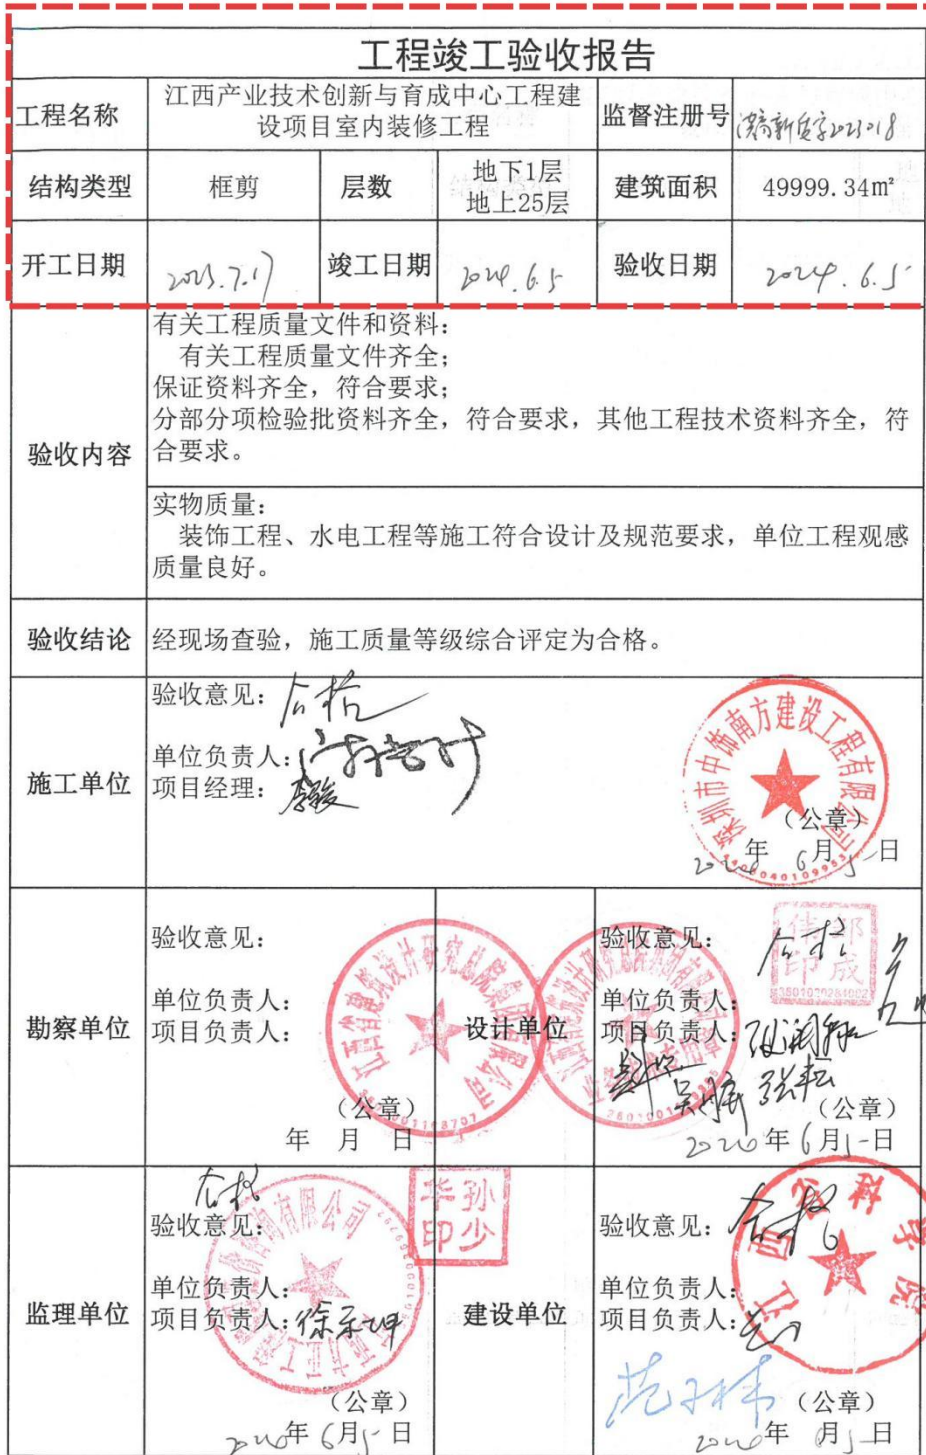 工程竣工验收报告
工程名称
江西产业技术创新与育成中心工程建
设项目室内装修工程
监督注册号
洪高新质字2023018
结构类型
框剪
层数
地下1层
地上25层
建筑面积
49999.34m²
开工日期
2023.7.17
竣工日期
2024.6.5
验收日期
2024.6.5
验收内容
有关工程质量文件和资料:
有关工程质量文件齐全;
保证资料齐全,符合要求;
分部分项检验批资料齐全,符合要求,其他工程技术资料齐全,符
合要求。
实物质量:
装饰工程、水电工程等施工符合设计及规范要求,单位工程观感
质量良好。
验收结论
经现场查验,施工质量等级综合评定为合格。
施工单位
验收意见:合格
单位负责人:
项目经理:李骏
深圳市中饰南方建设工程有限公司
(公章)
年 6月5日
勘察单位
验收意见:
单位负责人:
项目负责人:
江西省建筑设计研究总院集团有限公司
(公章)
年 月 日
设计单位
验收意见:合格
单位负责人:
项目负责人:
(公章)
年6月5日
监理单位
合格
验收意见:
单位负责人:
项目负责人:
孙少华印
(公章)
年6月5日
建设单位
验收意见:合格
单位负责人:
项目负责人:
江西省科学院
(公章)
年 6月5日